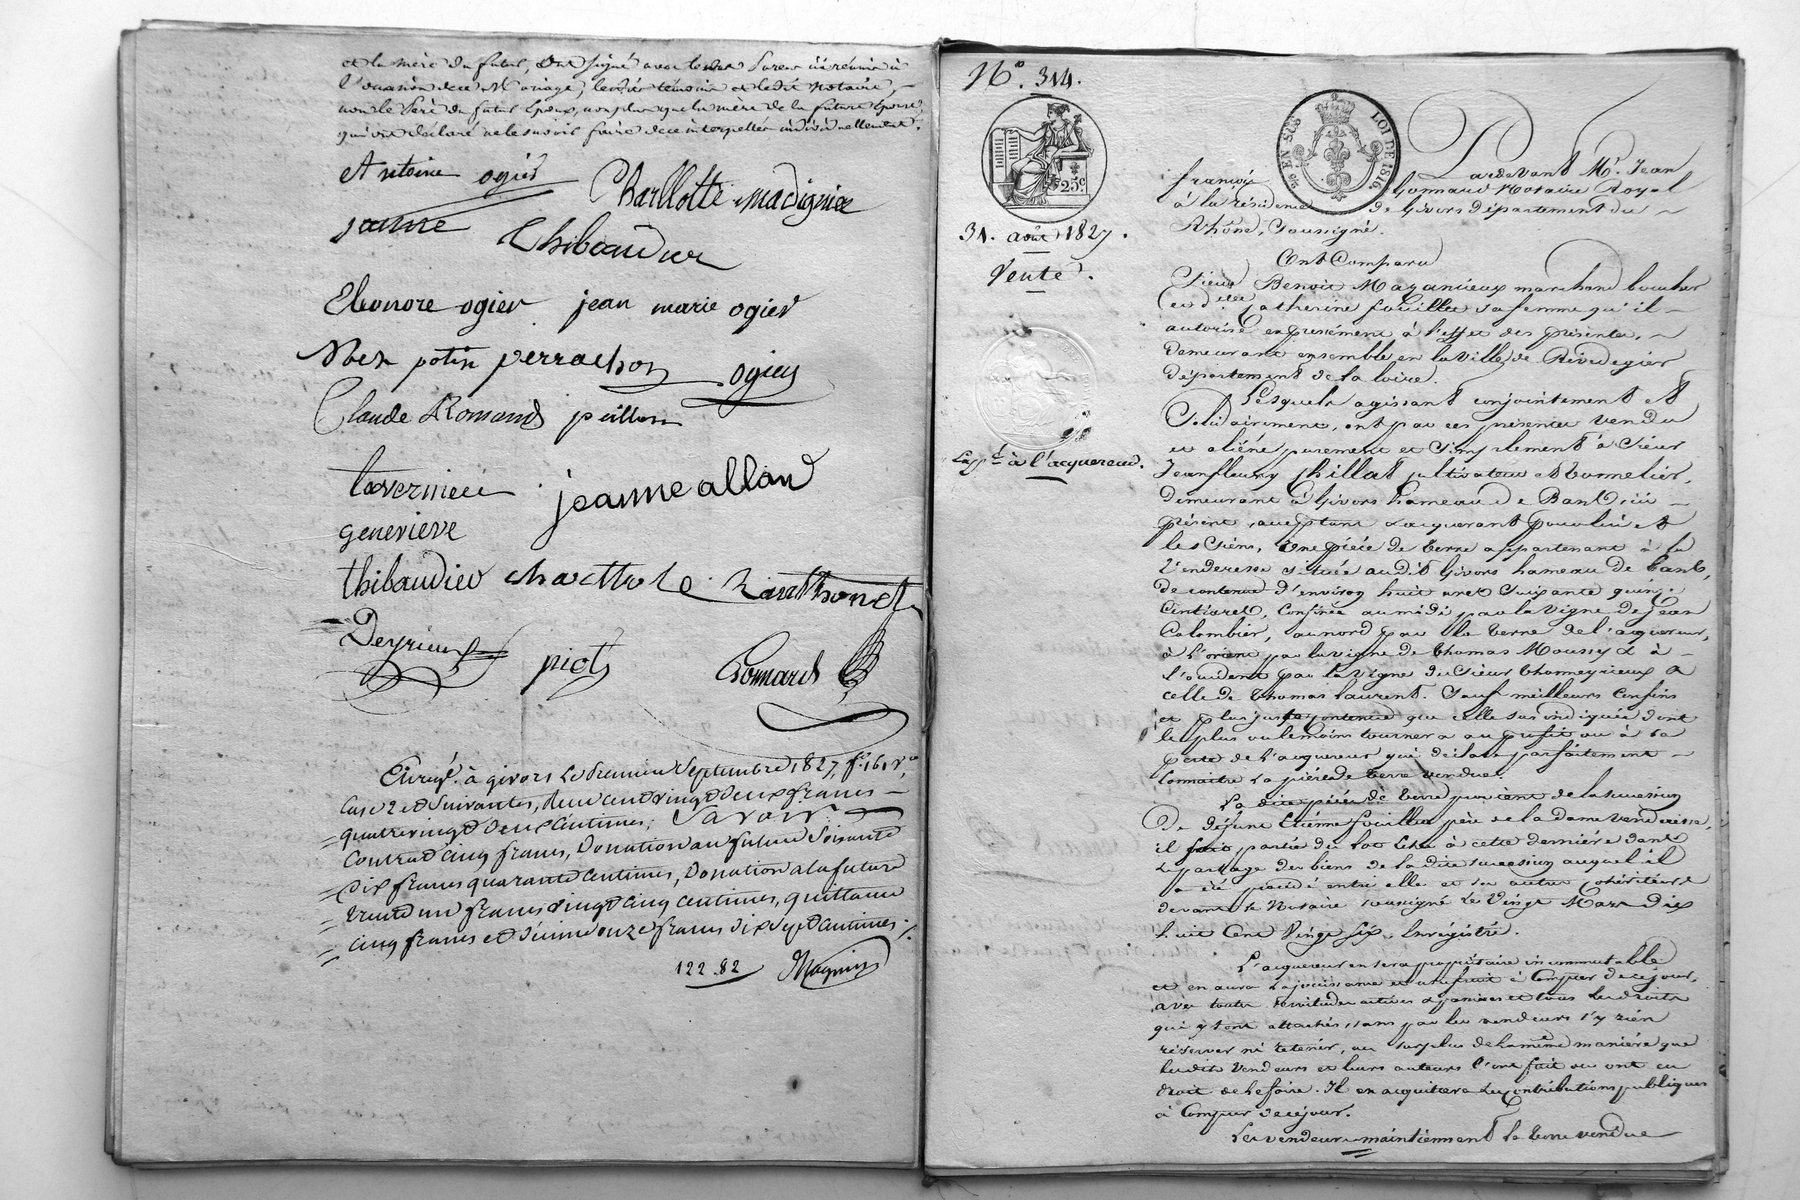 et la mère du futur, ont signé avec
l'occasion de ce Mariage, lesdits témoins et ledit Notaire,
non le Père du futur Epoux, non plus que la mère de la future Epouse,
qui ont déclaré ne le savoir faire de ce interpellés individuellement.
Antoine ogier
Charllotte Madignier
jeanne
Thibaudier
Eleonore ogier jean marie ogier
potin perrachon ogier
Claude Romand peillon
tavernier jeanne allan
genevieve
thibaudier
Deyrieux piot Gonnard
Enregé. à givors Le Premier Septembre 1827, fo. 161 Vo.
Case 2 et Suivantes, Reçu cent vingt deux francs
quatrevingt deux Centimes; Savoir:
Contrat cinq francs, Donation au futur Soixante
Dix francs quarante Centimes, Donation a la future
trente un francs vingt cinq centimes, quittance
cinq francs et Décime onze francs Dix Sept Centimes;
122.82 Magnin
No. 314.
25c
EN SUS LOI DE 1816.
31. août 1827.
Vente.
à l'acquereur.
Pardevant Me. Jean
françois Gonnard Notaire Royal
à la résidence de Givors département du
Rhône, Soussigné.
Ont Comparu
Sieur Benoit Mazancieux marchand boucher
et dlle Catherine fouilleu sa femme qu'il
autorise expressément à l'effet des présentes,
demeurant ensemble en la ville de Rivedegier
département de la loire.
Lesquels agissant conjointement et
Solidairement, ont par ces présentes vendu
et aliéné purement et Simplement à Sieur
Jean fleury Chillat cultivateur
demeurant à Givors hameau de Bans, ici
présent, acceptant & acquerant pour lui et
les Siens, Une pièce de terre appartenant à la
Venderesse située au dit Givors hameau de Bans,
De contenue d'environ huit ares Soixante quinze
Centiares, Confinée au midi, par la vigne de Jean
Colombier, au nord par la terre de l'acquereur,
à l'orient par la vigne de thomas Moussy & à
l'occident par la vigne du Sieur thomeyrieux &
celle de thomas laurent. Sauf meilleurs Confins
et plus juste contenue que celle sus indiquée dont
le plus ou le moins tournera au profit ou à la
perte de l'acquereur qui déclare parfaitement
Connaitre la pièce de terre vendue.
La dite pièce de terre provient de la succession
De défunt Etienne fouilleu père de la dame venderesse,
il fesait partie du lot échu à cette dernière dans
le partage des biens de la dite succession auquel il
a été procédé entre elle et ses autres cohéritiers
devant le Notaire soussigné le Vingt Mars dix
huit Cent Vingt Six, Enrégistré.
L'acquereur en sera propriétaire incommutable
et en aura la jouissance et usufruit à Compter de ce jour,
avec toutes servitudes actives & passives et tous les droits
qui y sont attachés, sans par les vendeurs s'y rien
réserver ni retenir, au surplus de la même manière que
lesdits vendeurs et leurs auteurs l'ont fait ou ont eu
droit de le faire. Il en acquittera les contributions publiques
à Compter de ce jour.
Les vendeurs maintiennent la terre vendue